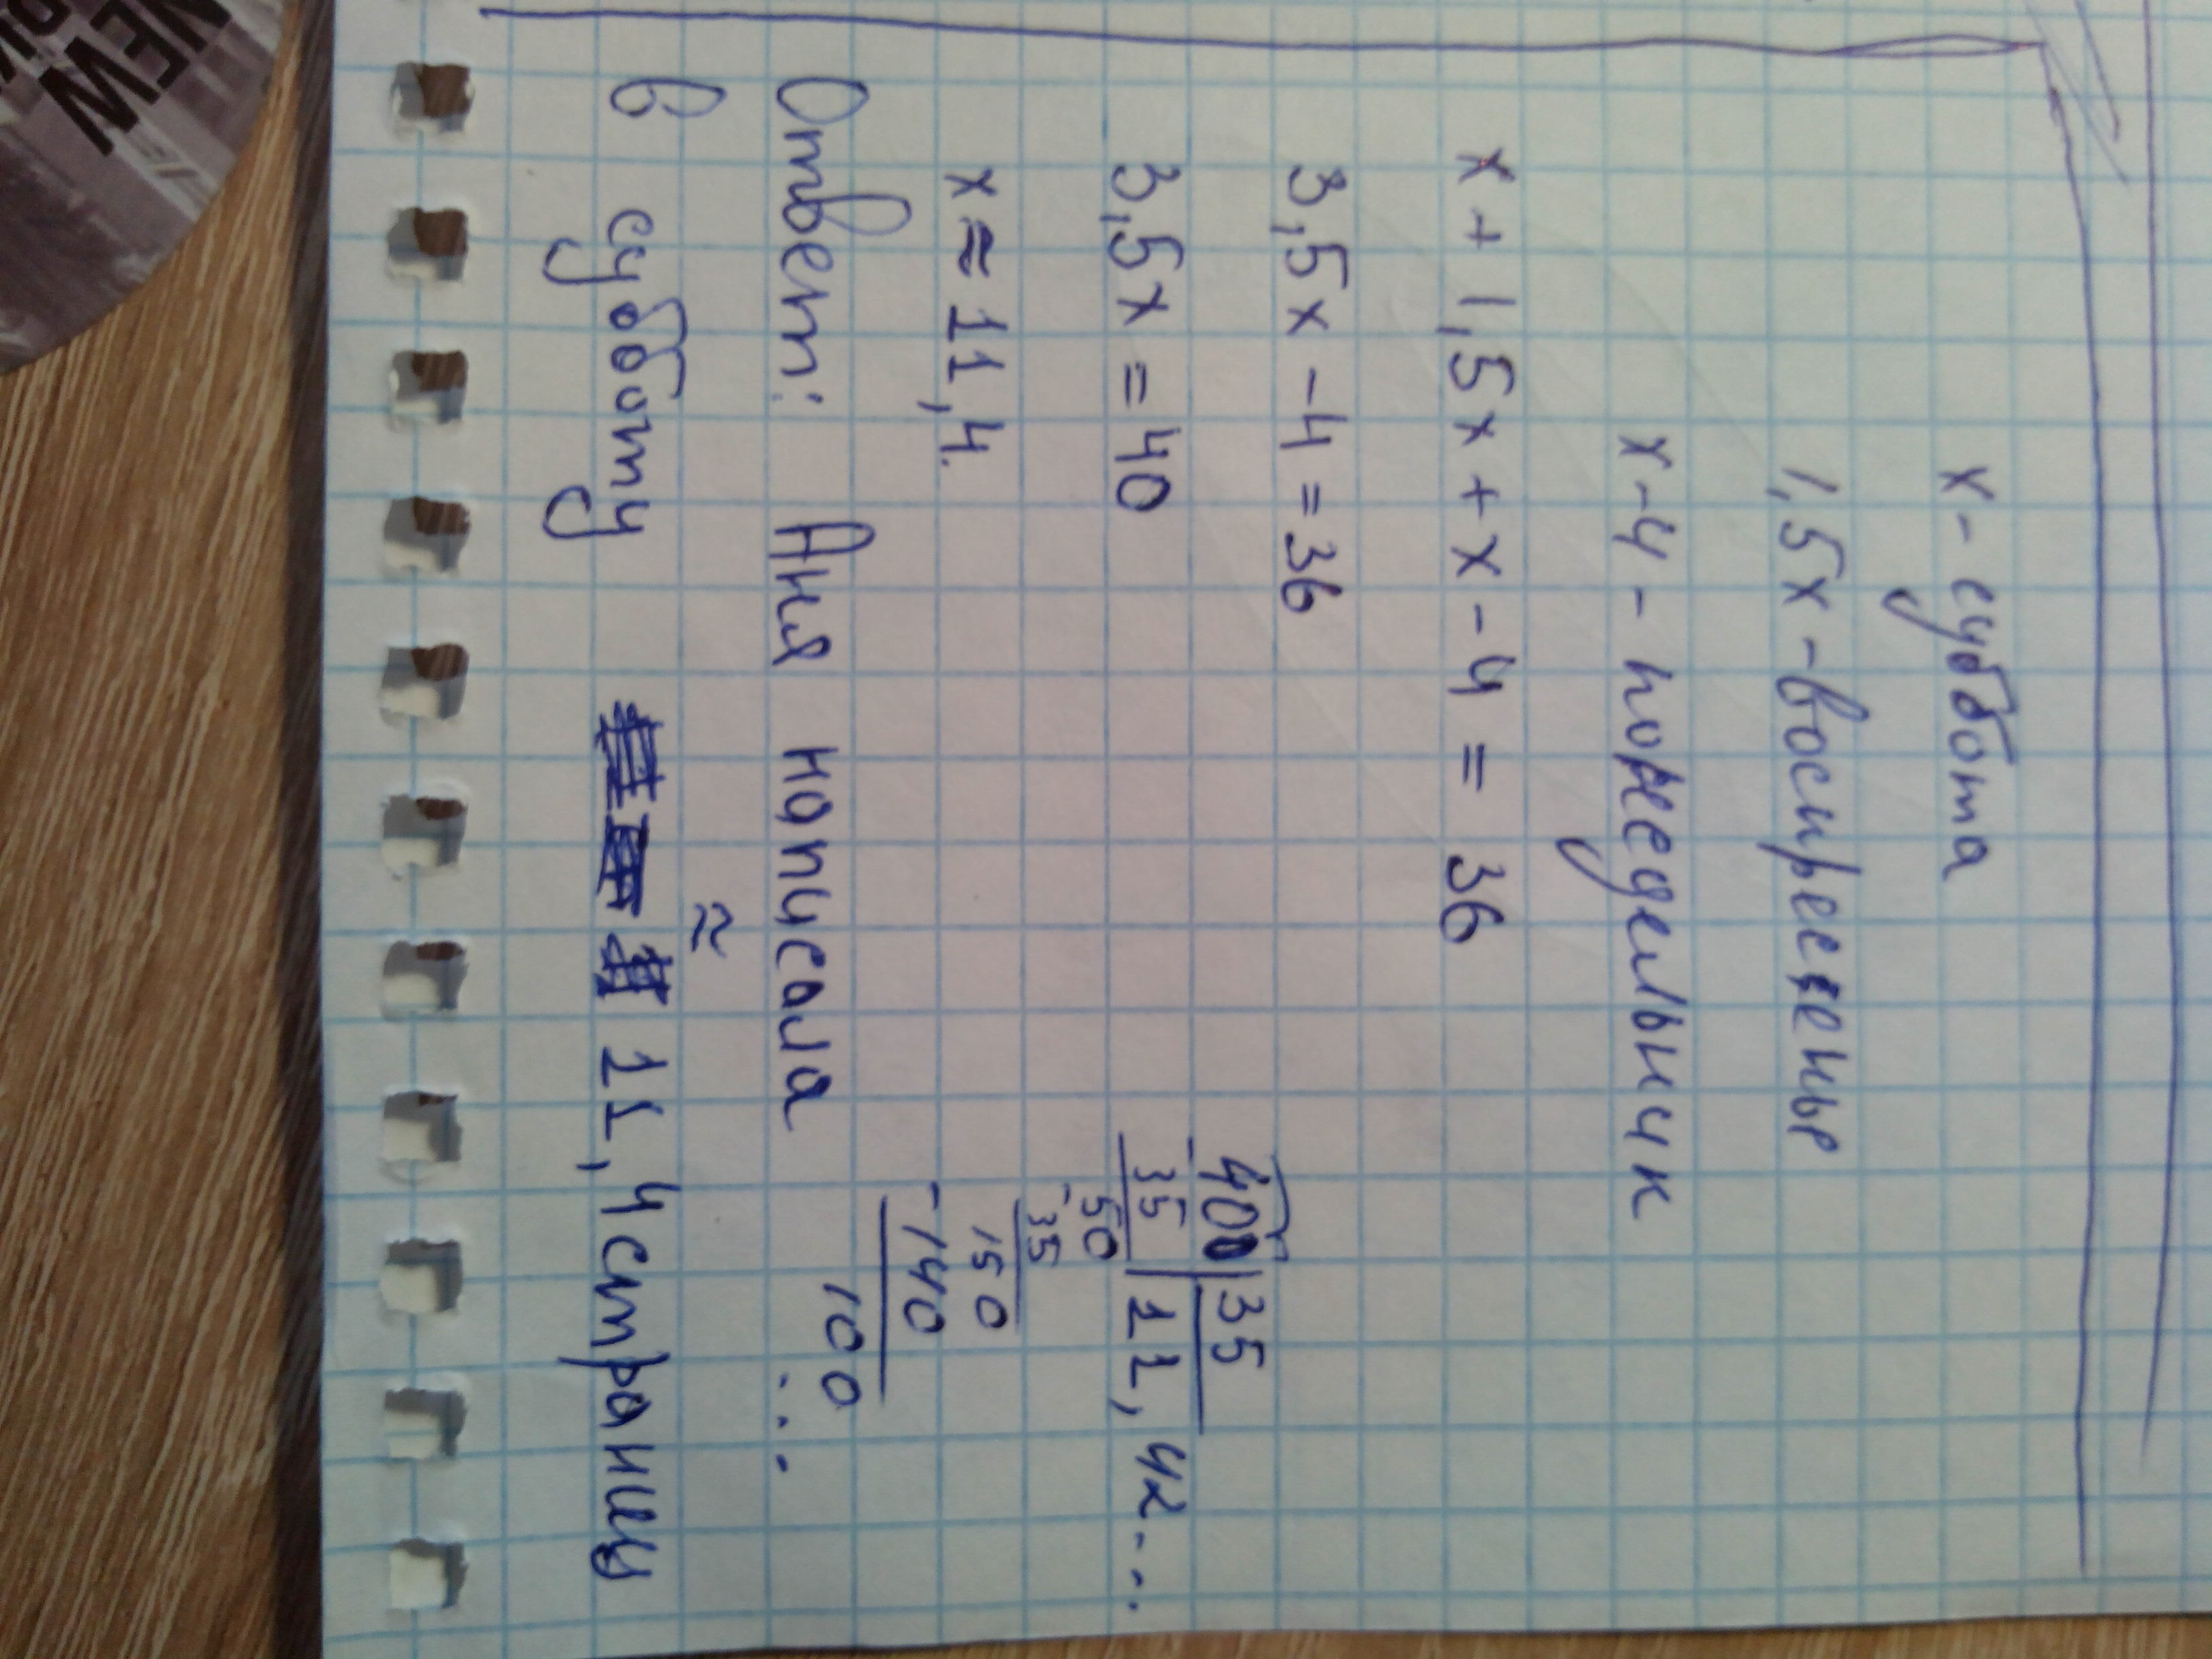 x - суббота
1,5x - воскресенье
x - 4 - понедельник
x + 1,5x + x - 4 = 36
3,5x - 4 = 36
3,5x = 40
x ≈ 11,4.
400 | 35
- 35 | 11,42...
50
- 35
150
- 140
100
...
Ответ: Аня написала
в субботу ≈ 11,4 страницы
NEW